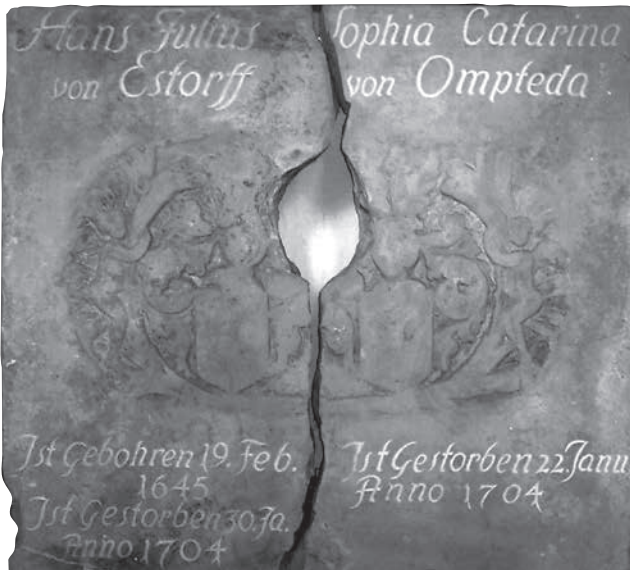 Hans Julius
von Estorff
Sophia Catarina
von Ompteda
Ist Gebohren 19. Feb.
1645
Ist Gestorben 30. Ja.
Anno. 1704
Ist Gestorben 22. Janu
Anno 1704